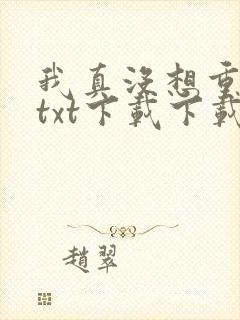 我真没想重
txt下載下載
趙翠